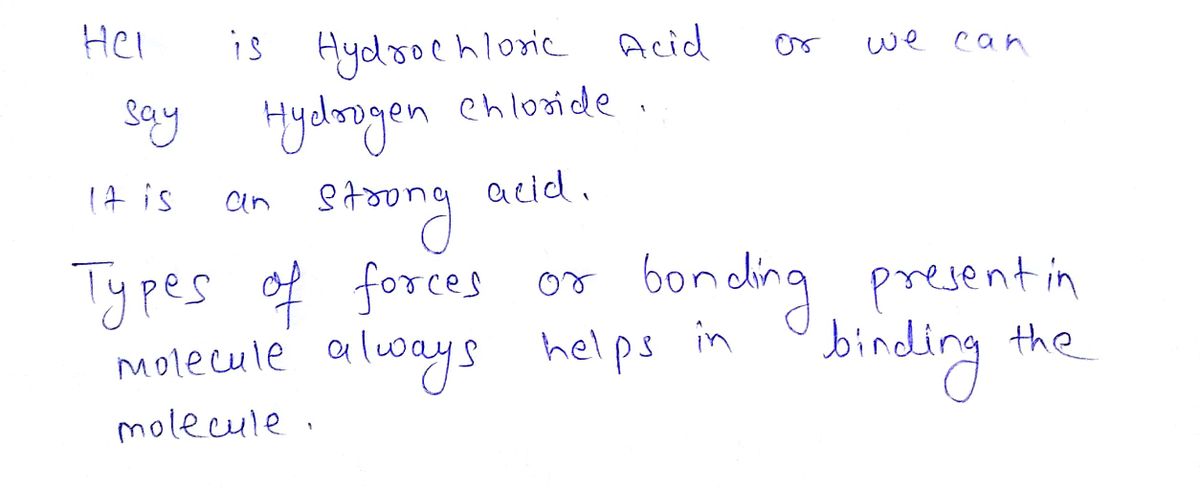 HCl is Hydrochloric Acid or we can
say Hydrogen chloride.
It is an strong acid.
Types of forces or bonding present in
molecule always helps in binding the
molecule.